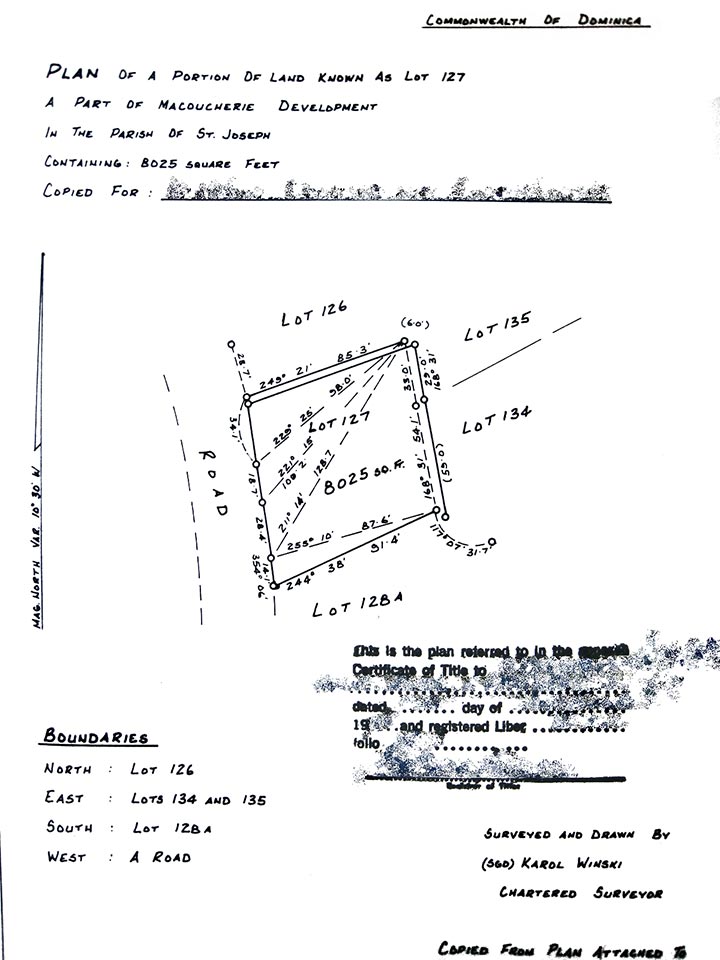 COMMONWEALTH OF DOMINICA
PLAN OF A PORTION OF LAND KNOWN AS LOT 127
A PART OF MACOUCHERIE DEVELOPMENT
IN THE PARISH OF ST. JOSEPH
CONTAINING: 8025 SQUARE FEET
COPIED FOR :
LOT 126
(6.0')
LOT 135
28.7'
249° 21' 85.3'
98.0'
229° 26'
33.0'
168° 31'
34.1'
LOT 127
LOT 134
221° 15'
108.2'
54.1'
ROAD
128.7
211° 14'
8025 SQ. FT.
(59.0)
18.7'
168° 31'
28.4'
255° 10' 87.6'
117° 07' 31.7'
91.4'
14.1'
354° 06'
244° 38'
LOT 128A
MAG. NORTH VAR. 10° 30' W
This is the plan referred to in the
Certificate of Title to
dated ........ day of
19 ... and registered Liber
folio
Registrar of Titles
BOUNDARIES
NORTH : LOT 126
EAST : LOTS 134 AND 135
SOUTH : LOT 128A
WEST : A ROAD
SURVEYED AND DRAWN BY
(SGD) KAROL WINSKI
CHARTERED SURVEYOR
COPIED FROM PLAN ATTACHED TO